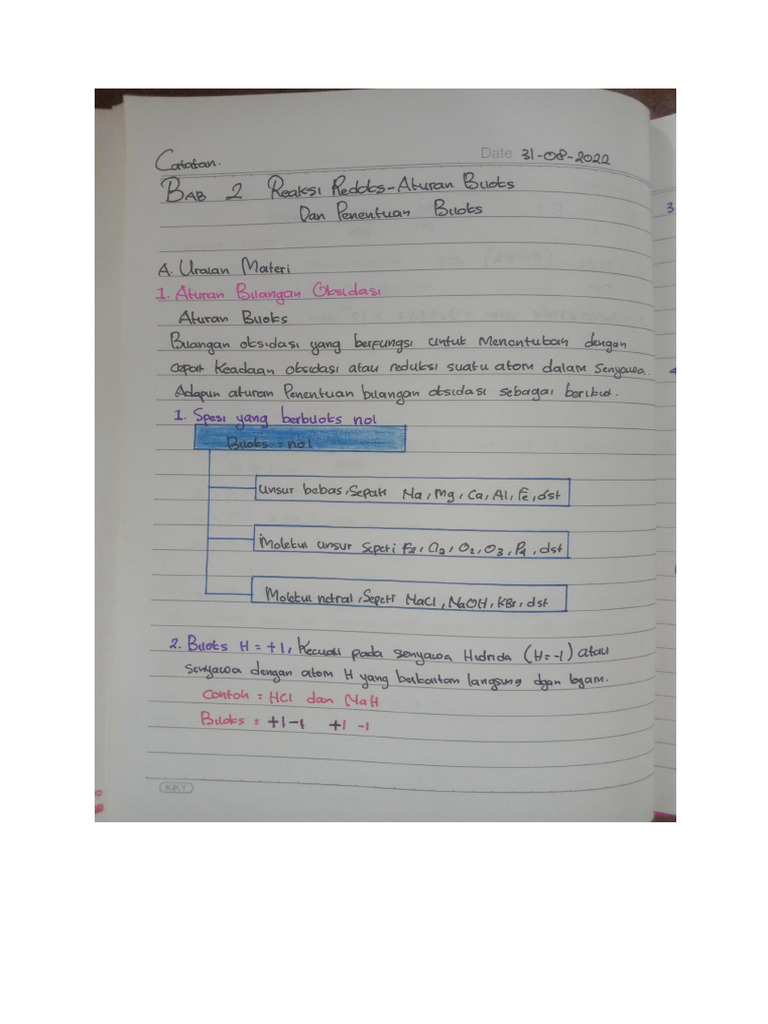 Catatan.
Date 31-08-2022
BAB 2 Reaksi Redoks-Aturan Biloks
Dan Penentuan Biloks
A. Uraian Materi
1. Aturan Bilangan Oksidasi
Aturan Biloks
Bilangan oksidasi yang berfungsi untuk Menentukan dengan
cepat Keadaan oksidasi atau reduksi suatu atom dalam senyawa.
Adapun aturan Penentuan bilangan oksidasi sebagai berikut.
1. Spesi yang berbiloks nol
Biloks = nol
Unsur bebas, Seperti Na, Mg, Ca, Al, Fe, dst
Molekul unsur Seperti F2, Cl2, O2, O3, P4, dst
Molekul netral, Seperti NaCl, NaOH, KBr, dst
2. Biloks H = +1, Kecuali pada senyawa Hidrida (H=-1) atau
Senyawa dengan atom H yang berkaitan langsung dgan logam.
Contoh = HCl dan NaH
Biloks = +1-1 +1 -1
KIKY
3